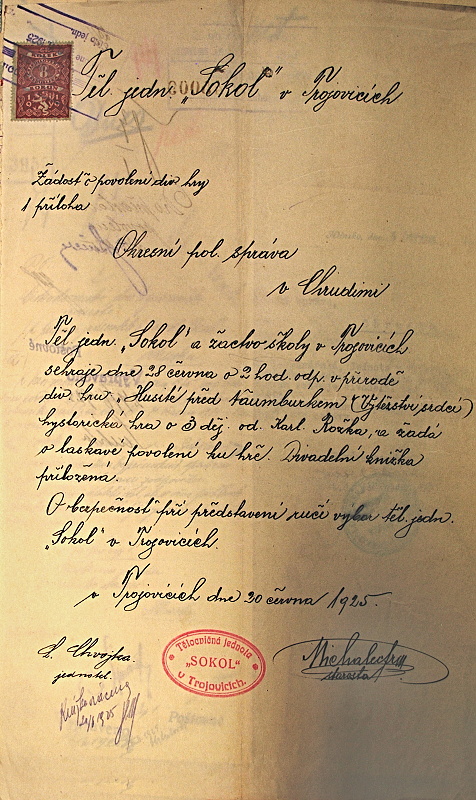 Těl. jedn. „Sokol“ v Trojovicích
Žádost o povolení div. hry
1 příloha
Okresní pol. správa
v Chrudimi
Těl. jedn. „Sokol“ a žactvo školy v Trojovicích
sehraje dne 28 června o 2 hod. odp. v přírodě
div. hru „Husité před Naumburkem (Výtěrství srdcí)
hystorická hra o 3 děj. od. Karl. Rožka, a žádá
o laskavé povolení ku hře. Divadelní knížka
přiložená.
O bezpečnost při představení ručí výbor těl. jedn.
„Sokol“ v Trojovicích.
v Trojovicích dne 20 června 1925.
Chvojka.
jednatel.
Tělocvičná jednota
„SOKOL“
v Trojovicích.
starosta